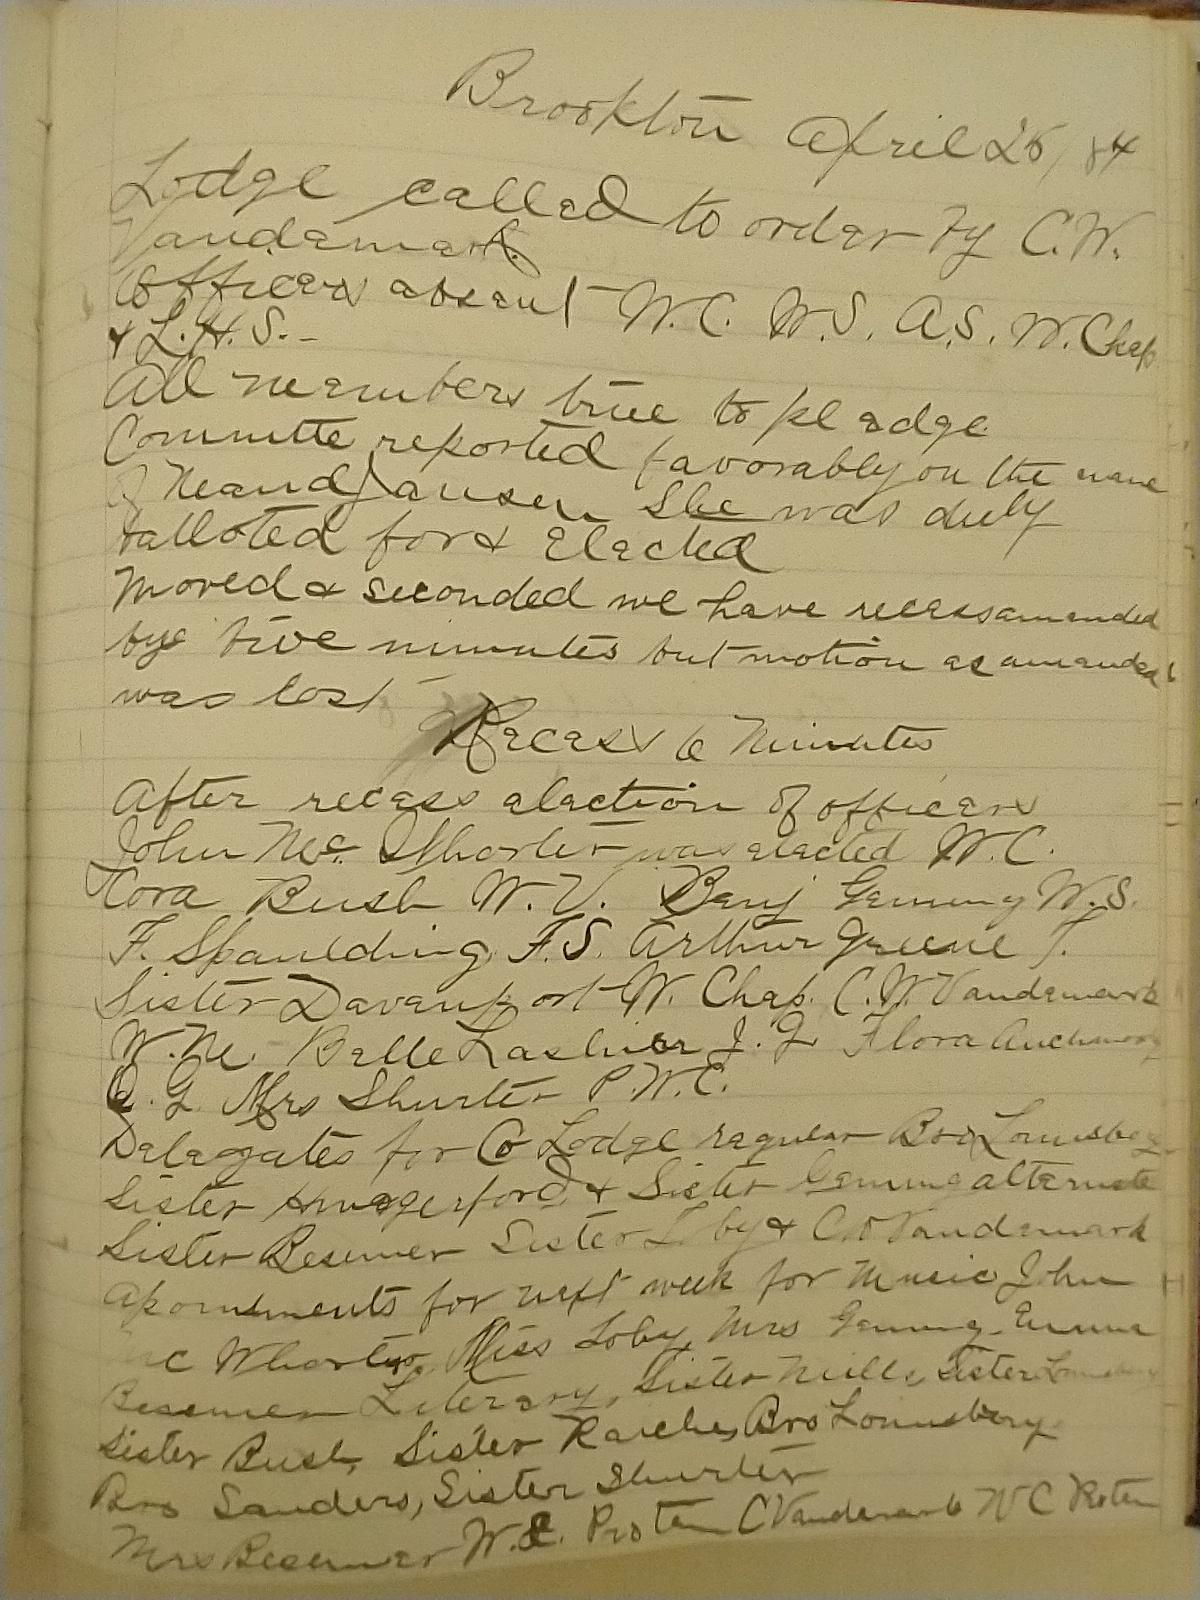 Brookton April 26/84
Lodge called to order by C.W.
Vandemark.
Officers absent W.C. W.S. A.S. W. Chap
& L.H.S. -
All members true to pledge
Committe reported favorably on the name
of Jansen She was duly
balloted for & elected
Moved & seconded we have recess amended
bye five minutes but motion as amended
was lost
Recess 6 Minutes
After recess election of officers
John Mc Whorter was elected W.C.
Cora Bush W.V. Benj Genung W.S.
F. Spaulding F.S. Arthur Greene T.
Sister Davenport W. Chap. C.W. Vandemark
W.M. Belle Lashier J.G. Flora
O.G. Mrs Shurter P.W.C.
Delegates for Co Lodge regular Bro Lounsbery
Sister & Sister Genung alternate
Sister Besemer Sister Loby & C.W Vandemark
Apointments for next week for Music John
Mc Whorter, Miss Loby, Mrs Genung, Emma
Besemer Literary, Sister Mills, Sister
Sister Bush, Sister Bro Lounsbery
Bro Sanders, Sister Shurter
Mrs Besemer W.S. Pro tem C Vandemark W C Protem